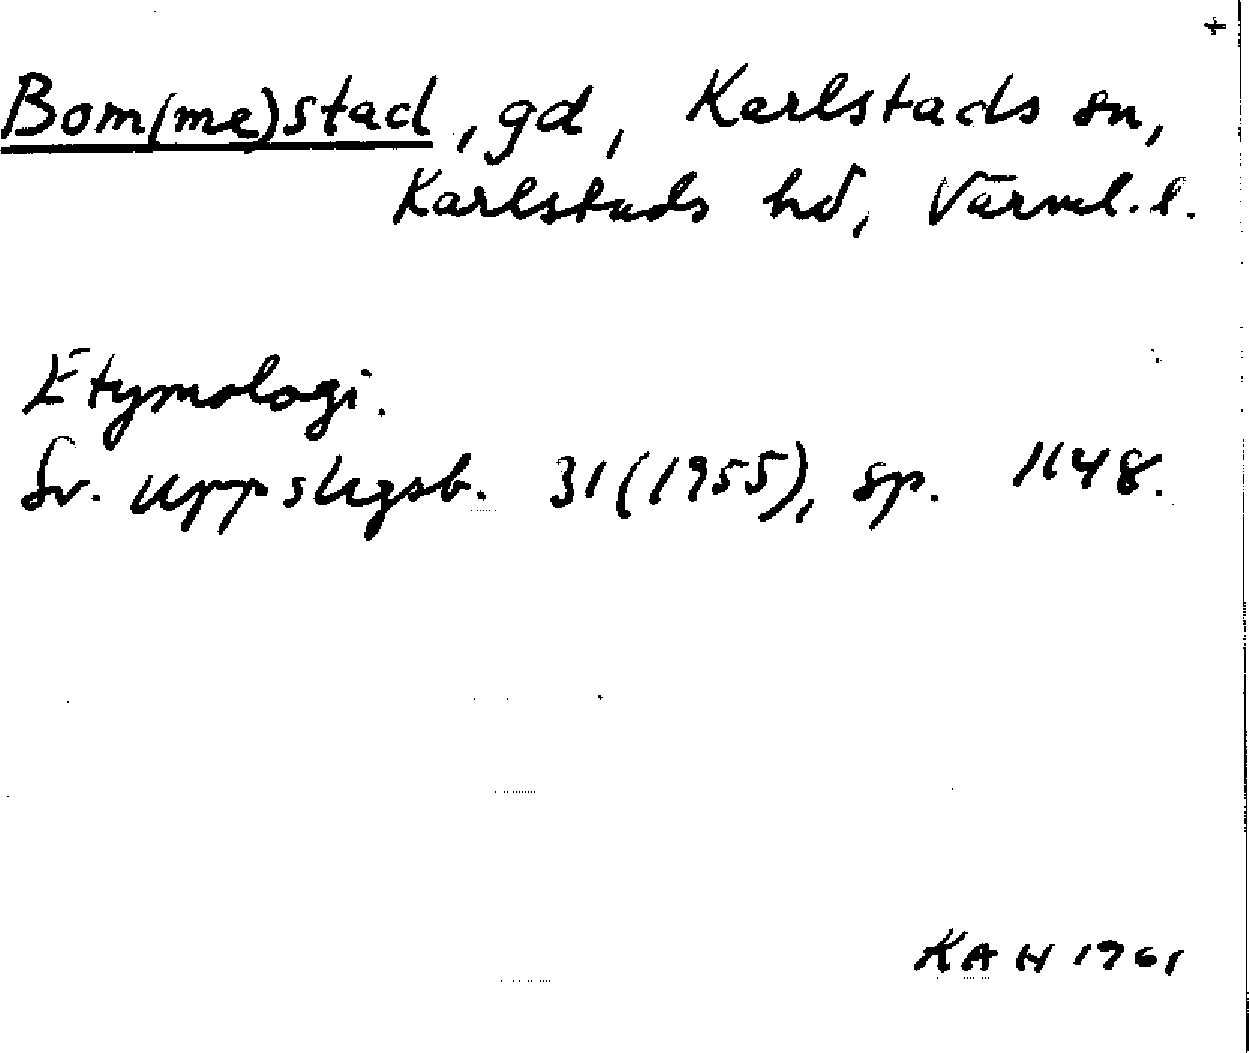 Bom(me)stad, gd, Karlstads sn,
Karlstads hd, Värml. l.
Etymologi.
Sv. uppslagsb. 31 (1955), sp. 1148.
KAH 1961